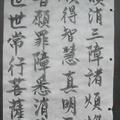 願消三障諸煩
得智慧真明了
普願罪障悉消
世世常行菩薩